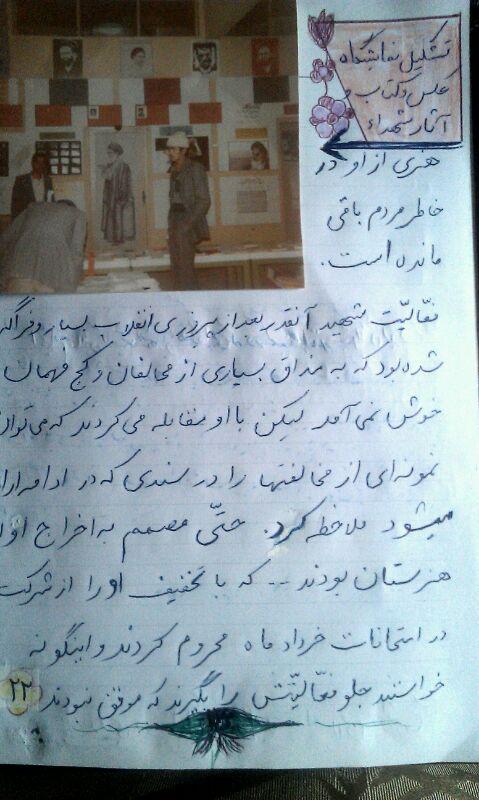 تشکیل نمایشگاه
عکس و کتاب و
آثار شهداء
هنری از او در
خاطر مردم باقی
مانده است.
فعّالیّت شهید آنقدر بعد از پیروزی انقلاب بسیار و فراگیر
شده بود که به مذاق بسیاری از مخالفان و کج فهمان
خوش نمی آمد لیکن با او مقابله می کردند که می توان
نمونه ای از مخالفتها را در سندی که در ادامه
میشود ملاحظه کرد. حتّی مصمم به اخراج او
هنرستان بودند -- که با تخفیف او را از شرکت
در امتحانات خرداد ماه محروم کردند و اینگونه
خواستند جلو فعّالیّتش را بگیرند که موفق نبودند
۲۲